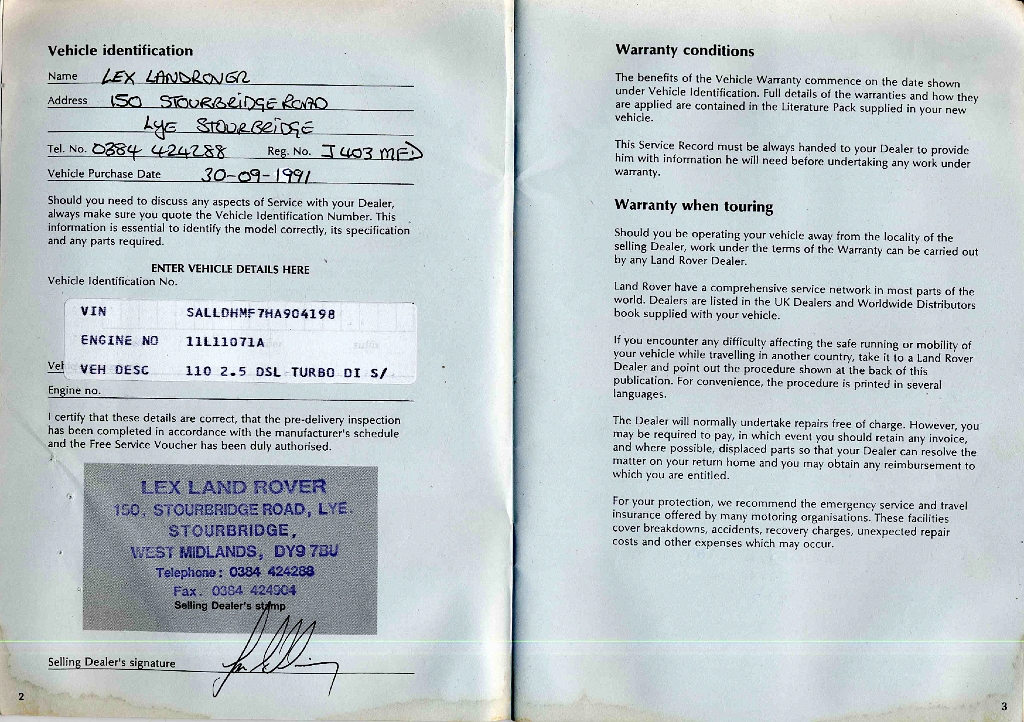 Vehicle identification
Name LEX LANDROVER
Address 150 STOURBRIDGE ROAD
LYE STOURBRIDGE
Tel. No. 0384 424288 Reg. No. J403 MFD
Vehicle Purchase Date 30-09-1991
Should you need to discuss any aspects of Service with your Dealer,
always make sure you quote the Vehicle Identification Number. This
information is essential to identify the model correctly, its specification
and any parts required.
ENTER VEHICLE DETAILS HERE
Vehicle Identification No.
VIN SALLDHMF7HA904198
ENGINE NO 11L11071A
Veh VEH DESC 110 2.5 DSL TURBO DI S/
Engine no.
I certify that these details are correct, that the pre-delivery inspection
has been completed in accordance with the manufacturer's schedule
and the Free Service Voucher has been duly authorised.
LEX LAND ROVER
150, STOURBRIDGE ROAD, LYE
STOURBRIDGE,
WEST MIDLANDS, DY9 7BU
Telephone: 0384 424288
Fax. 0384 424904
Selling Dealer's stamp
Selling Dealer's signature
2
Warranty conditions
The benefits of the Vehicle Warranty commence on the date shown
under Vehicle Identification. Full details of the warranties and how they
are applied are contained in the Literature Pack supplied in your new
vehicle.
This Service Record must be always handed to your Dealer to provide
him with information he will need before undertaking any work under
warranty.
Warranty when touring
Should you be operating your vehicle away from the locality of the
selling Dealer, work under the terms of the Warranty can be carried out
by any Land Rover Dealer.
Land Rover have a comprehensive service network in most parts of the
world. Dealers are listed in the UK Dealers and Worldwide Distributors
book supplied with your vehicle.
If you encounter any difficulty affecting the safe running or mobility of
your vehicle while travelling in another country, take it to a Land Rover
Dealer and point out the procedure shown at the back of this
publication. For convenience, the procedure is printed in several
languages.
The Dealer will normally undertake repairs free of charge. However, you
may be required to pay, in which event you should retain any invoice,
and where possible, displaced parts so that your Dealer can resolve the
matter on your return home and you may obtain any reimbursement to
which you are entitled.
For your protection, we recommend the emergency service and travel
insurance offered by many motoring organisations. These facilities
cover breakdowns, accidents, recovery charges, unexpected repair
costs and other expenses which may occur.
3